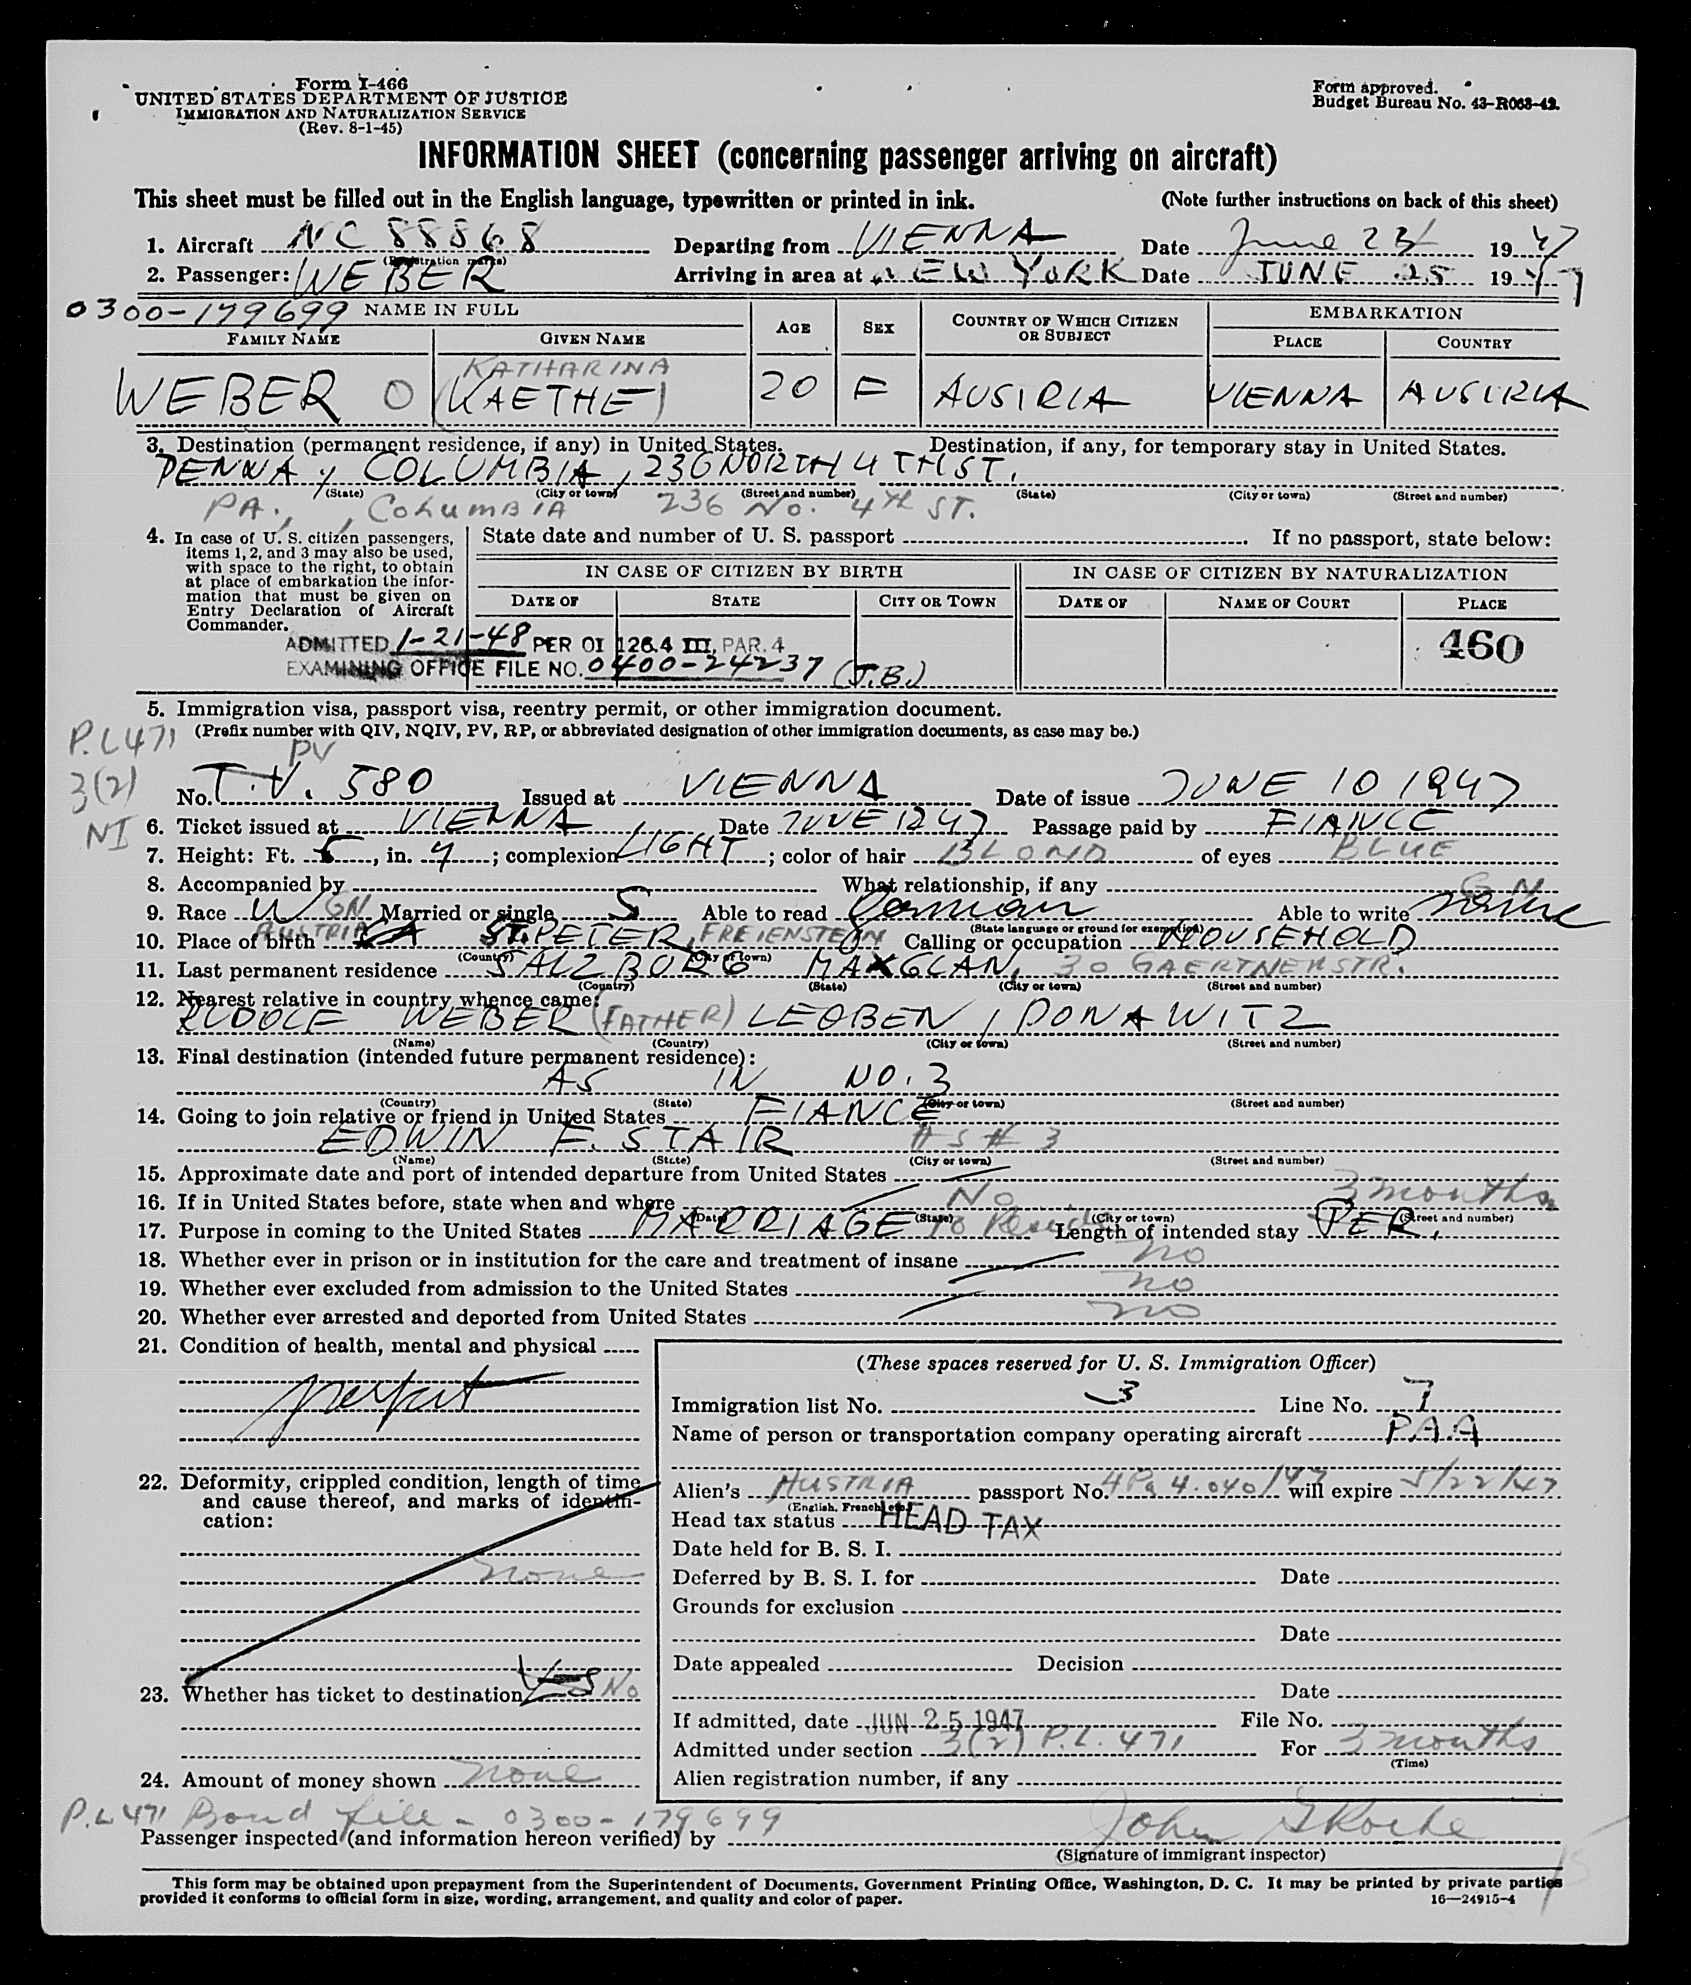 Form I-466
UNITED STATES DEPARTMENT OF JUSTICE
IMMIGRATION AND NATURALIZATION SERVICE
(Rev. 8-1-45)
Form approved.
Budget Bureau No. 43-R063-42.
INFORMATION SHEET (concerning passenger arriving on aircraft)
This sheet must be filled out in the English language, typewritten or printed in ink. (Note further instructions on back of this sheet)
1. Aircraft NC 88868 Departing from VIENNA Date June 23 1947
(Registration marks)
2. Passenger: WEBER Arriving in area at NEW YORK Date JUNE 25 1947
0300-179699 NAME IN FULL AGE SEX COUNTRY OF WHICH CITIZEN OR SUBJECT EMBARKATION
FAMILY NAME GIVEN NAME PLACE COUNTRY
KATHARINA
WEBER O (KAETHE) 20 F AUSTRIA VIENNA AUSTRIA
3. Destination (permanent residence, if any) in United States. Destination, if any, for temporary stay in United States.
PENNA, COLUMBIA, 236 NORTH 4TH ST.
(State) (City or town) (Street and number) (State) (City or town) (Street and number)
PA., COLUMBIA 236 No. 4th ST.
4. In case of U. S. citizen passengers, items 1, 2, and 3 may also be used, with space to the right, to obtain at place of embarkation the information that must be given on Entry Declaration of Aircraft Commander.
State date and number of U. S. passport If no passport, state below:
IN CASE OF CITIZEN BY BIRTH IN CASE OF CITIZEN BY NATURALIZATION
DATE OF STATE CITY OR TOWN DATE OF NAME OF COURT PLACE
460
ADMITTED 1-21-48 PER OI 126.4 III, PAR. 4
EXAMINING OFFICE FILE NO. 0400-24237 (J.B.)
5. Immigration visa, passport visa, reentry permit, or other immigration document.
P.L 471 (Prefix number with QIV, NQIV, PV, RP, or abbreviated designation of other immigration documents, as case may be.)
3(2) PV
No. T.V. 580 Issued at VIENNA Date of issue JUNE 10 1947
NI 6. Ticket issued at VIENNA Date JUNE 12 47 Passage paid by FIANCE
7. Height: Ft. 5, in. 4; complexion LIGHT; color of hair BLOND of eyes BLUE
8. Accompanied by What relationship, if any
9. Race W GN Married or single S Able to read German Able to write same
(State language or ground for exemption)
10. Place of birth AUSTRIA ST. PETER, FREIENSTEIN Calling or occupation HOUSEHOLD
(Country) (City or town)
11. Last permanent residence SALZBURG MAXGLAN, 30 GAERTNERSTR.
(Country) (State) (City or town) (Street and number)
12. Nearest relative in country whence came:
RUDOLF WEBER (FATHER) LEOBEN, DONAWITZ
(Name) (Country) (City or town) (Street and number)
13. Final destination (intended future permanent residence):
AS IN NO. 3
(Country) (State) (City or town) (Street and number)
14. Going to join relative or friend in United States FIANCE
EDWIN F. STAIR AS # 3
(Name) (State) (City or town) (Street and number)
15. Approximate date and port of intended departure from United States
16. If in United States before, state when and where No 3 months
(Date) (State) (City or town) (Street and number)
17. Purpose in coming to the United States MARRIAGE To Reside Length of intended stay PER.
18. Whether ever in prison or in institution for the care and treatment of insane no
19. Whether ever excluded from admission to the United States no
20. Whether ever arrested and deported from United States no
21. Condition of health, mental and physical
perfect
22. Deformity, crippled condition, length of time and cause thereof, and marks of identification:
none
23. Whether has ticket to destination Yes No
24. Amount of money shown none
(These spaces reserved for U. S. Immigration Officer)
Immigration list No. 3 Line No. 7
Name of person or transportation company operating aircraft PAA
Alien's AUSTRIA passport No. 4Pa 4.040/47 will expire 5/22/47
(English, French, etc.)
Head tax status HEAD TAX
Date held for B. S. I.
Deferred by B. S. I. for Date
Grounds for exclusion
Date
Date appealed Decision
Date
If admitted, date JUN 25 1947 File No.
Admitted under section 3(2) P.L. 471 For 3 months
(Time)
Alien registration number, if any
P.L 471 Bond file - 0300-179699
Passenger inspected (and information hereon verified) by John
(Signature of immigrant inspector)
This form may be obtained upon prepayment from the Superintendent of Documents, Government Printing Office, Washington, D. C. It may be printed by private parties
provided it conforms to official form in size, wording, arrangement, and quality and color of paper. 16—24915-4